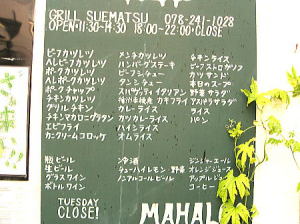 GRILL SUEMATSU 078-241-1028
OPEN・11:30~14:30 18:00~22:00・CLOSE
ビーフカツレツ
ヘレビーフカツレツ
ポークカツレツ
ヘレポークカツレツ
ポークチャップ
チキンカツレツ
グリルチキン
チキンマカロニグラタン
エビフライ
カニクリームコロッケ
メンチカツレツ
ハンバーグステーキ
ビーフシチュー
タンシチュー
スパゲッティイタリアン
カキフライ
カレーライス
カツカレーライス
ハイシライス
オムライス
チキンライス
ビーフストロガノフ
カツサンド
本日のスープ
野菜サラダ
アスパラサラダ
ライス
パン
瓶ビール
生ビール
グラスワイン
ボトルワイン
冷酒
チューハイレモン・野菜
ノンアルコールビール
ジンジャーエール
オレンジジュース
アップル
コーヒー
TUESDAY
CLOSE!
MAHAL